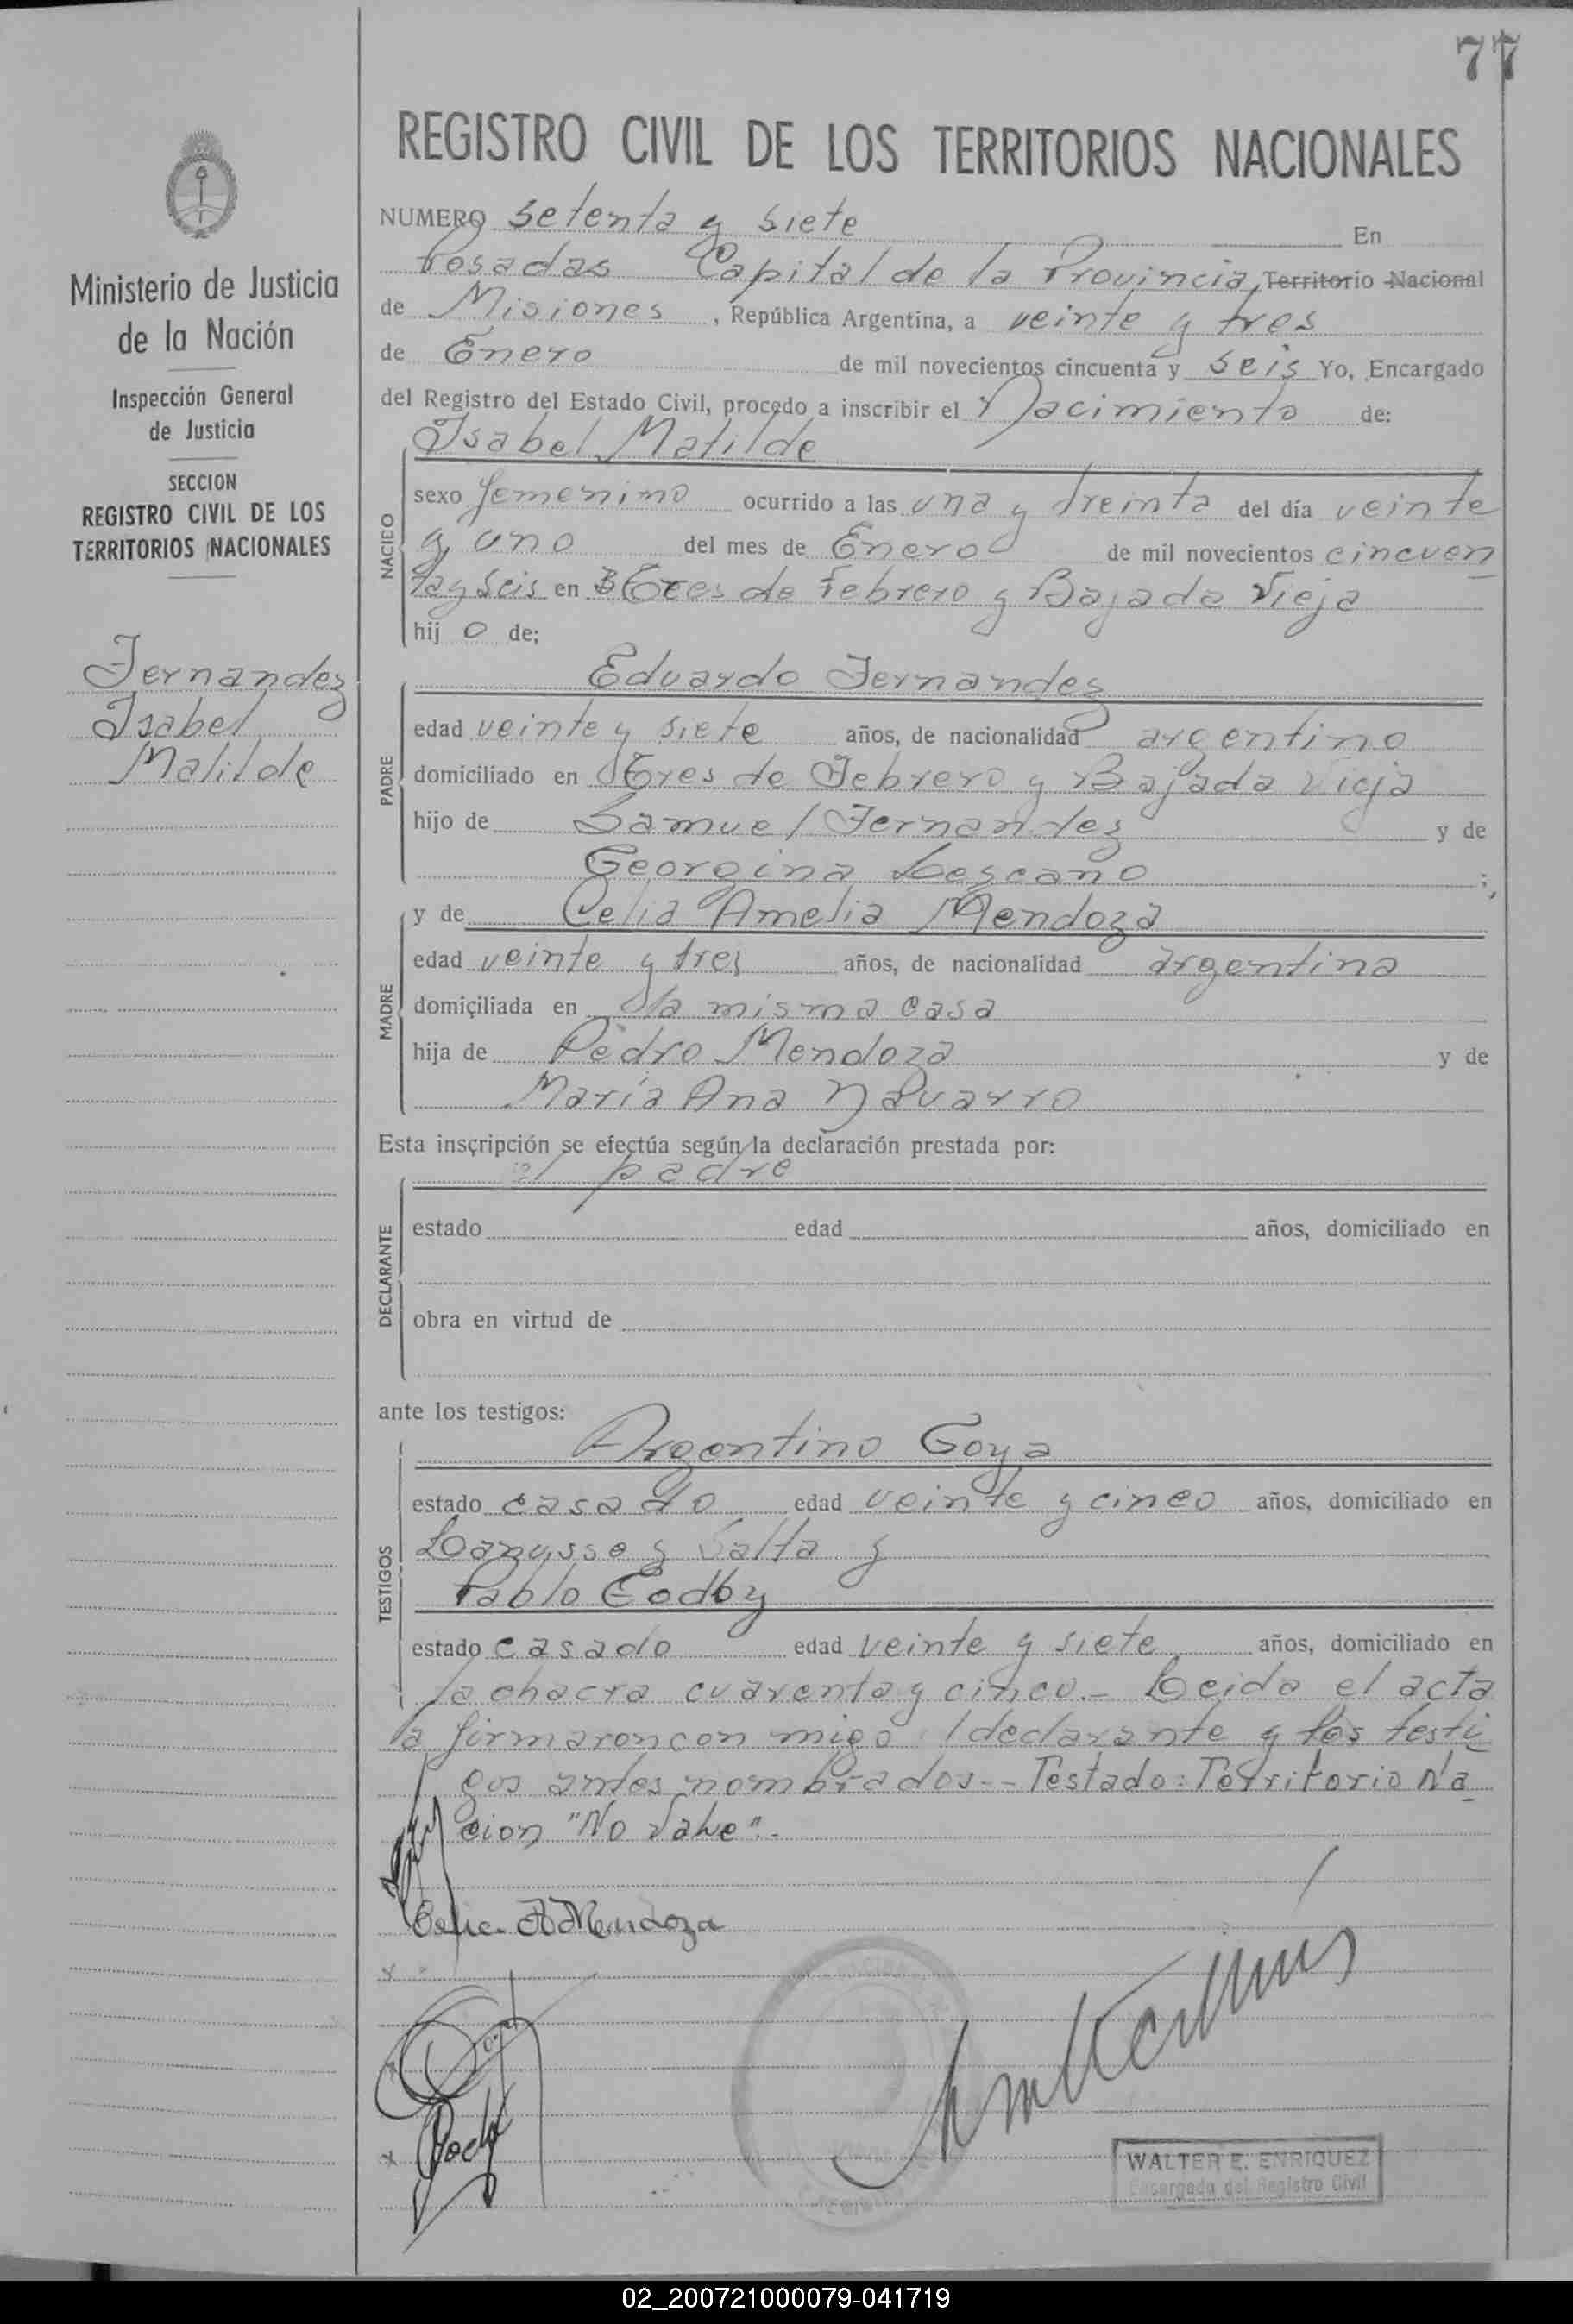 77
REGISTRO CIVIL DE LOS TERRITORIOS NACIONALES
Ministerio de Justicia
de la Nación
Inspección General
de Justicia
SECCION
REGISTRO CIVIL DE LOS
TERRITORIOS NACIONALES
Fernandez
Isabel
Matilde
NUMERO setenta y siete En
Posadas Capital de la Provincia, Territorio Nacional
de Misiones, República Argentina, a veinte y tres
de Enero de mil novecientos cincuenta y seis Yo, Encargado
del Registro del Estado Civil, procedo a inscribir el Nacimiento de:
Isabel Matilde
NACIDO
sexo femenino ocurrido a las una y treinta del día veinte
y uno del mes de Enero de mil novecientos cincuen
ta y seis en Tres de Febrero y Bajada Vieja
hij o de;
Eduardo Fernandez
PADRE
edad veinte y siete años, de nacionalidad argentino
domiciliado en Tres de Febrero y Bajada Vieja
hijo de Samuel Fernandez y de
Georgina Lescano;
MADRE
y de Celia Amelia Mendoza
edad veinte y tres años, de nacionalidad argentina
domiciliada en la misma casa
hija de Pedro Mendoza y de
María Ana Navarro
Esta inscripción se efectúa según la declaración prestada por:
el padre
DECLARANTE
estado edad años, domiciliado en
obra en virtud de
ante los testigos:
Argentino Goya
TESTIGOS
estado casado edad veinte y cinco años, domiciliado en
Lanusse y Salta y
Pablo Godoy
estado casado edad veinte y siete años, domiciliado en
la chacra cuarenta y cinco.- Leida el acta
la firmaron con migo l declarante y los testi
gos antes nombrados.-- Testado: Territorio Na
cion "No Vale".-
Celia A Mendoza
WALTER E. ENRIQUEZ
Encargado del Registro Civil
02_200721000079-041719